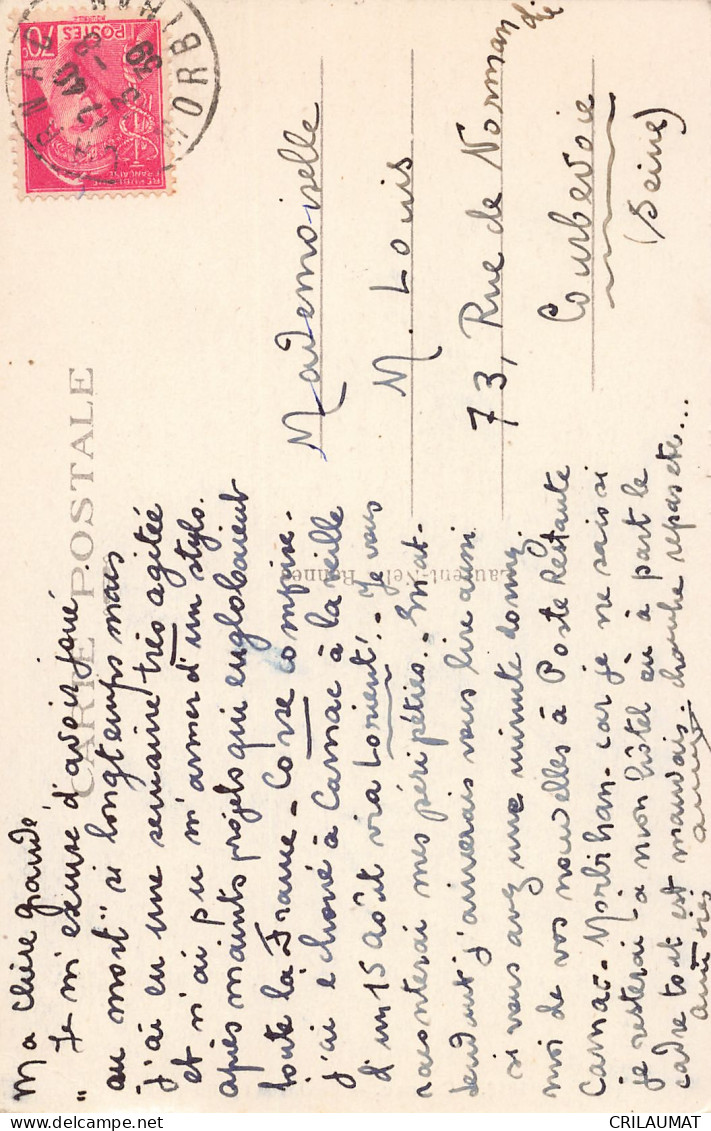 CARTE POSTALE
Ma chère grande
Je m'excuse d'avoir joué
" au mort" si longtemps mais
j'ai eu une semaine très agitée
et n'ai pu m'armer d'un stylo.
après maints projets qui englobaient
toute la France - Corse comprise.
j'ai échoué à Carnac à la veille
d'un 15 août via Lorient! - Je vous
raconterai mes péripéties. - En at-
tendant j'aimerais vous lire aussi
si vous avez une minute donnez
moi de vos nouvelles à Poste Restante
Carnac - Morbihan - car je ne sais si
je resterai à mon hôtel où à part le
cadre tout est mauvais - chambre repas etc...
amitiés
Mademoiselle
M. Louis
73, Rue de Normandie
Courbevoie
(Seine)
Laurent-Nel, Rennes
POSTES
70c
RÉPUBLIQUE FRANÇAISE
CARNAC
MORBIHAN
39
CRILAUMAT